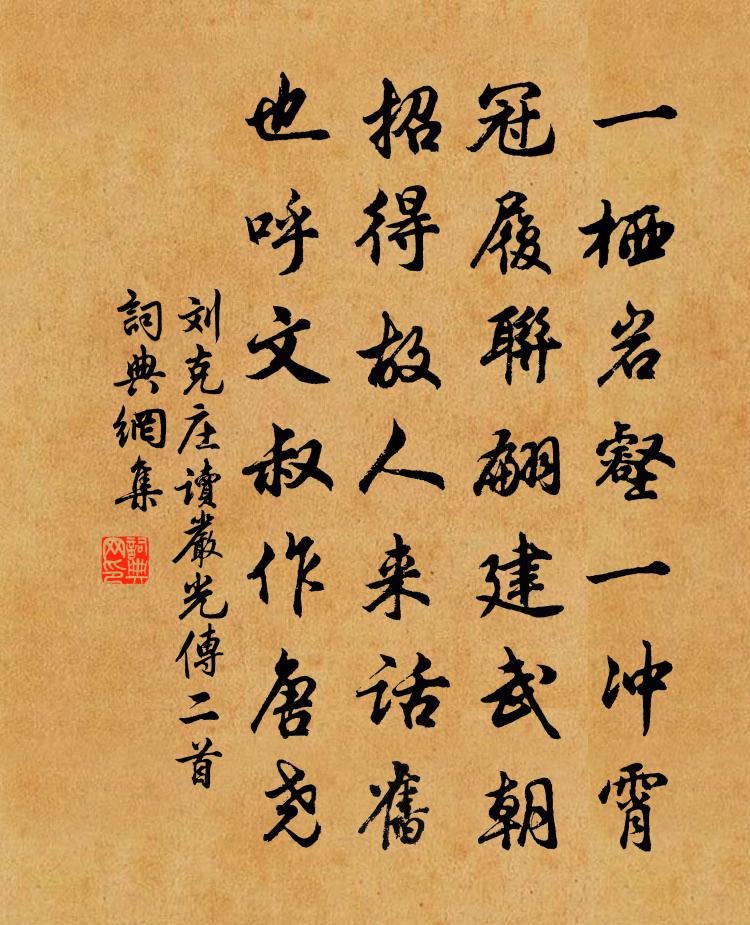 一栖岩壑一冲霄
冠履聯翩建武朝
招得故人来話舊
也呼文叔作唐尧
刘克庄讀嚴光傳二首
詞典網集
詞典网印